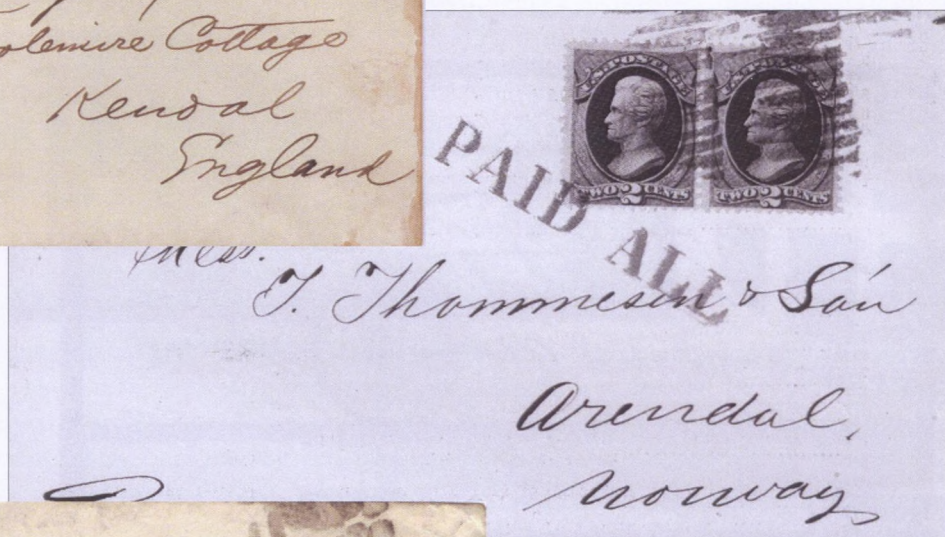 Cottage
Kendal
England
U.S. POSTAGE
TWO 2 CENTS
U.S. POSTAGE
TWO 2 CENTS
PAID ALL
Mess.
T. Thommesen & Són
Arendal,
Norway